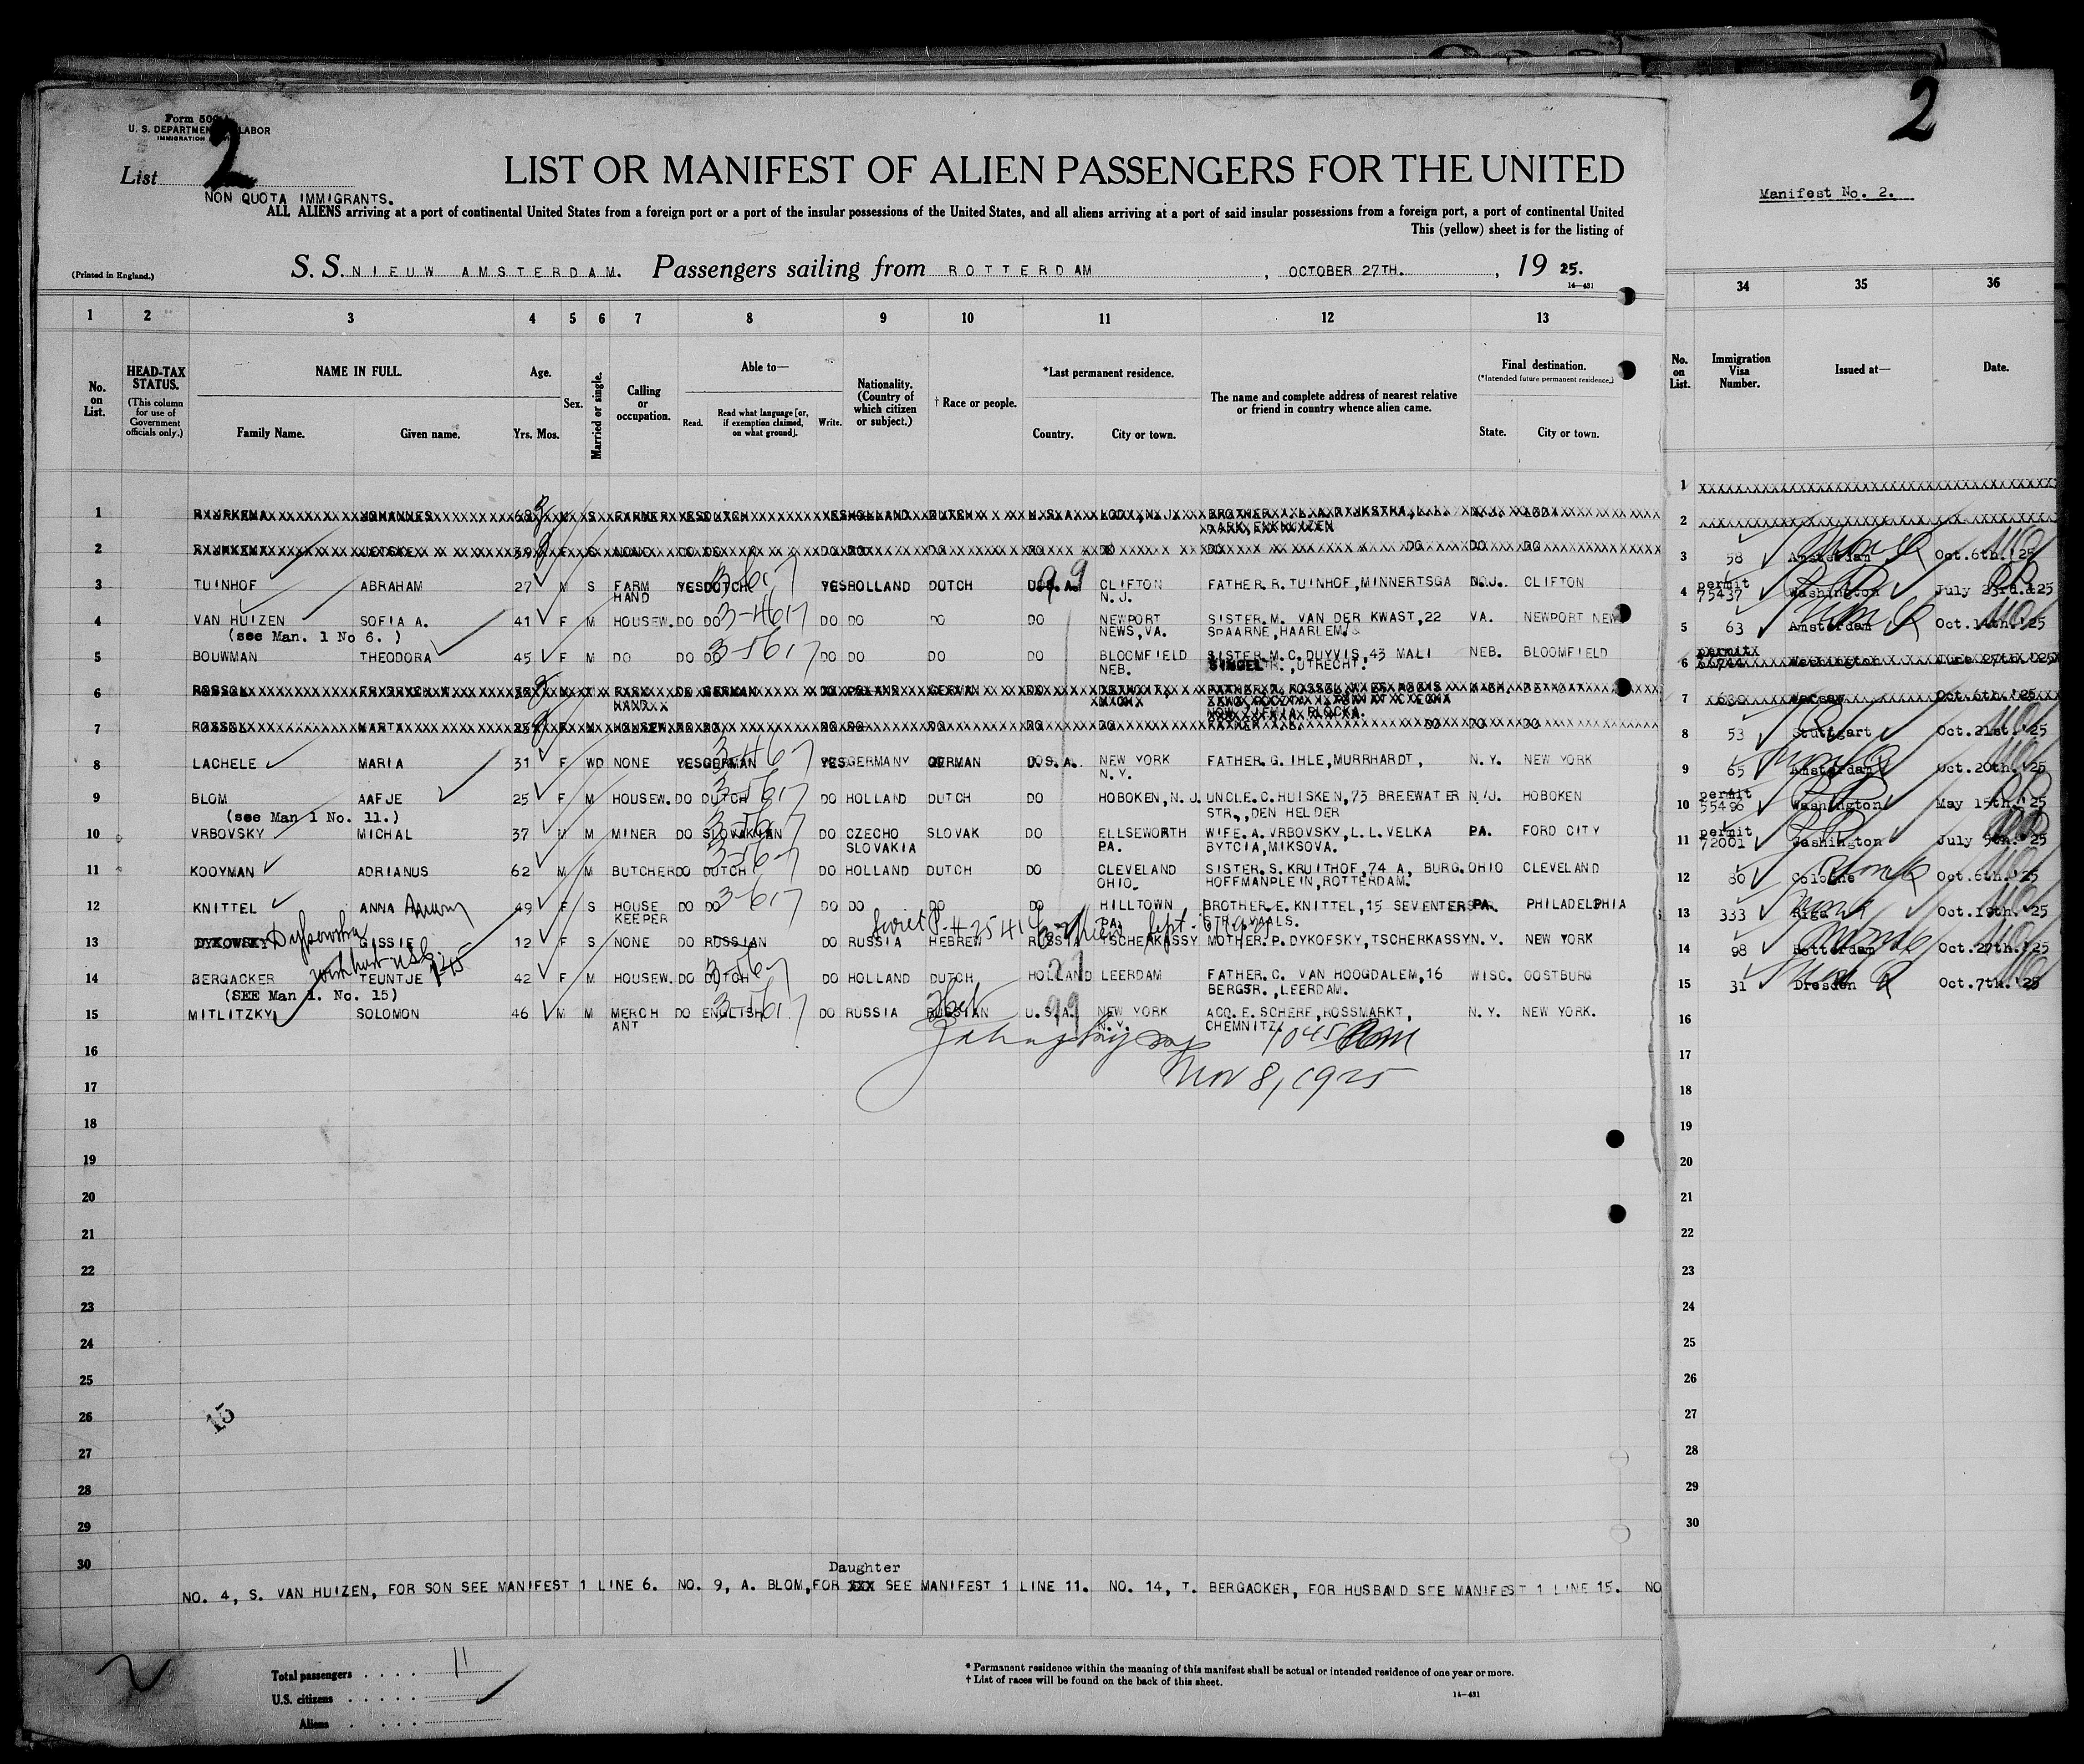 2
Form 500
U. S. DEPARTMENT LABOR
IMMIGRATION
List 2
NON QUOTA IMMIGRANTS.
LIST OR MANIFEST OF ALIEN PASSENGERS FOR THE UNITED
Manifest No. 2.
ALL ALIENS arriving at a port of continental United States from a foreign port or a port of the insular possessions of the United States, and all aliens arriving at a port of said insular possessions from a foreign port, a port of continental United
This (yellow) sheet is for the listing of
(Printed in England.)
S. S. NIEUW AMSTERDAM. Passengers sailing from ROTTERDAM, OCTOBER 27TH., 19 25.
14—431
1 2 3 4 5 6 7 8 9 10 11 12 13
34 35 36
No. on List.
HEAD-TAX STATUS.
(This column for use of Government officials only.)
NAME IN FULL.
Family Name. Given name.
Age.
Yrs. Mos.
Sex.
Married or single.
Calling or occupation.
Able to—
Read. Read what language [or, if exemption claimed, on what ground]. Write.
Nationality. (Country of which citizen or subject.)
† Race or people.
*Last permanent residence.
Country. City or town.
The name and complete address of nearest relative or friend in country whence alien came.
Final destination.
(*Intended future permanent residence.)
State. City or town.
No. on List.
Immigration Visa Number.
Issued at—
Date.
1 JOHANNES S FARMER YES DUTCH YES HOLLAND DUTCH U.S.A. LODI, N.J. N.J. LODI
2 F S NONE DO DO DO DO DO DO DO DO DO DO
3 TUINHOF ABRAHAM 27 M S FARM YES DUTCH YES HOLLAND DUTCH U.S.A. CLIFTON FATHER. R. TUINHOF, MINNERTSGA N.J. CLIFTON
HAND N. J.
4 VAN HUIZEN SOFIA A. 41 F M HOUSEW. DO DO 3-4617 DO DO DO DO NEWPORT SISTER. M. VAN DER KWAST, 22 VA. NEWPORT NEW
(see Man. 1 No 6. ) NEWS, VA. SPAARNE, HAARLEM.
5 BOUWMAN THEODORA 45 F M DO DO DO 3-5617 DO DO DO DO BLOOMFIELD SISTER. M. C. DUYVIS, 43 MALI NEB. BLOOMFIELD
NEB. SINGEL, UTRECHT.
6 ROSSOL M FARM DO GERMAN DO POLAND GERMAN DO
HAND
7 ROSSOL MARTA F M HOUSEW. DO DO DO DO DO DO DO DO DO DO
8 LACHELE MARIA 31 F WD NONE YES GERMAN YES GERMANY GERMAN U.S.A. NEW YORK FATHER. G. IHLE, MURRHARDT, N. Y. NEW YORK
N. Y.
9 BLOM AAFJE 25 F M HOUSEW. DO DUTCH DO HOLLAND DUTCH DO HOBOKEN, N. J. UNCLE. C. HUISKEN, 73 BREEWATER N.J. HOBOKEN
(see Man 1 No. 11.) STR., DEN HELDER
10 VRBOVSKY MICHAL 37 M M MINER DO SLOVAKIAN DO CZECHO SLOVAK DO ELLSEWORTH WIFE. A. VRBOVSKY, L. L. VELKA PA. FORD CITY
SLOVAKIA PA. BYTCIA, MIKSOVA.
11 KOOYMAN ADRIANUS 62 M M BUTCHER DO DUTCH DO HOLLAND DUTCH DO CLEVELAND SISTER. S. KRUITHOF, 74 A, BURG. OHIO CLEVELAND
OHIO. HOFFMANPLEIN, ROTTERDAM.
12 KNITTEL ANNA 49 F S HOUSE DO DO 3-617 DO DO DO DO HILLTOWN BROTHER. E. KNITTEL, 15 SEVENTER PA. PHILADELPHIA
KEEPER PA. STR., VAALS.
13 DYKOWSKY GISSIE 12 F S NONE DO RUSSIAN DO RUSSIA HEBREW RUSSIA TSCHERKASSY MOTHER. P. DYKOFSKY, TSCHERKASSY N. Y. NEW YORK
14 BERGACKER TEUNTJE 42 F M HOUSEW. DO DUTCH DO HOLLAND DUTCH HOLLAND LEERDAM FATHER. C. VAN HOOGDALEM, 16 WISC. OOSTBURG
(SEE Man 1. No. 15) BERGSR., LEERDAM.
15 MITLITZKY SOLOMON 46 M M MERCH DO ENGLISH DO RUSSIA RUSSIAN U.S.A. NEW YORK ACQ. E. SCHERF, ROSSMARKT, N. Y. NEW YORK.
ANT N. Y. CHEMNITZ.
Nov 8, 1925
16
17
18
19
20
21
22
23
24
25
26
15
27
28
29
30
Daughter
NO. 4, S. VAN HUIZEN, FOR SON SEE MANIFEST 1 LINE 6. NO. 9, A. BLOM, FOR XXX SEE MANIFEST 1 LINE 11. NO. 14, T. BERGACKER, FOR HUSBAND SEE MANIFEST 1 LINE 15. NO
Total passengers . . . . 11
U.S. citizens . . . . .
Aliens . . . .
* Permanent residence within the meaning of this manifest shall be actual or intended residence of one year or more.
† List of races will be found on the back of this sheet.
14—431
2
1
2
3 58 Amsterdam Oct.6th.'25
permit
4 75437 Washington July 23rd.'25
5 63 Amsterdam Oct.14th.'25
permit
6 66744 Washington June 27th.'25
7 630 Warsaw Oct.6th.'25
8 53 Stuttgart Oct.21st.'25
9 65 Amsterdam Oct.20th.'25
permit
10 55496 Washington May 15th.'25
permit
11 72001 Washington July 9th.'25
12 80 Cologne Oct.6th.'25
13 333 Riga Oct.19th.'25
14 98 Rotterdam Oct.27th.'25
15 31 Dresden Oct.7th.'25
16
17
18
19
20
21
22
23
24
25
26
27
28
29
30